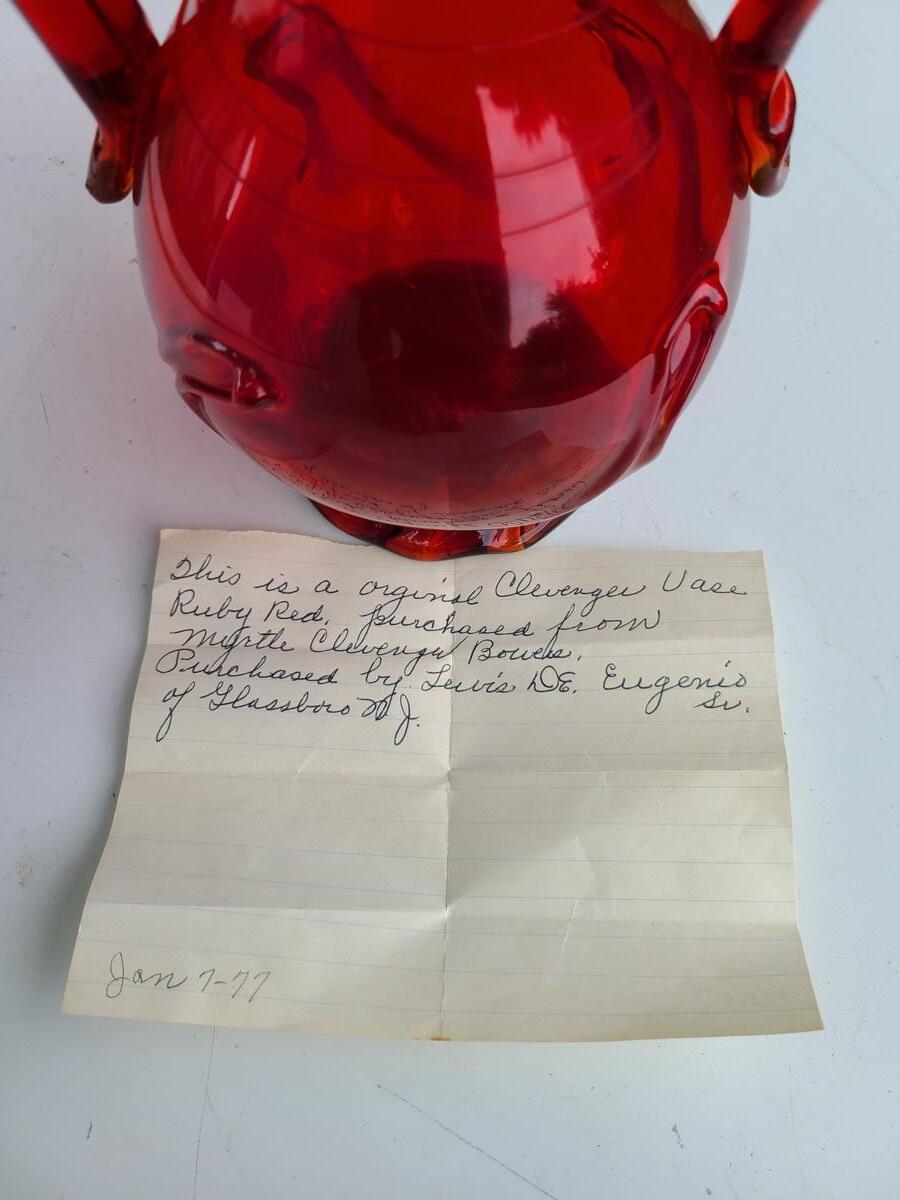 This is a orginal Clevenger Vase
Ruby Red. purchased from
Myrtle Clevenger Bowers.
Purchased by Lewis DE. Eugenio
Sr.
of Glassboro N.J.
Jan 7-77